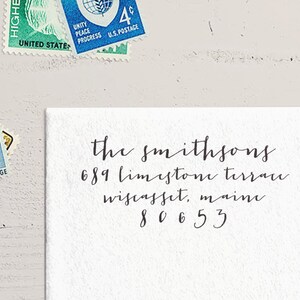 HIGHE
UNITED STATES
UNITY
PEACE
PROGRESS
4¢
U.S. POSTAGE
the smithsons
689 limestone terrace
wiscasset, maine
80653